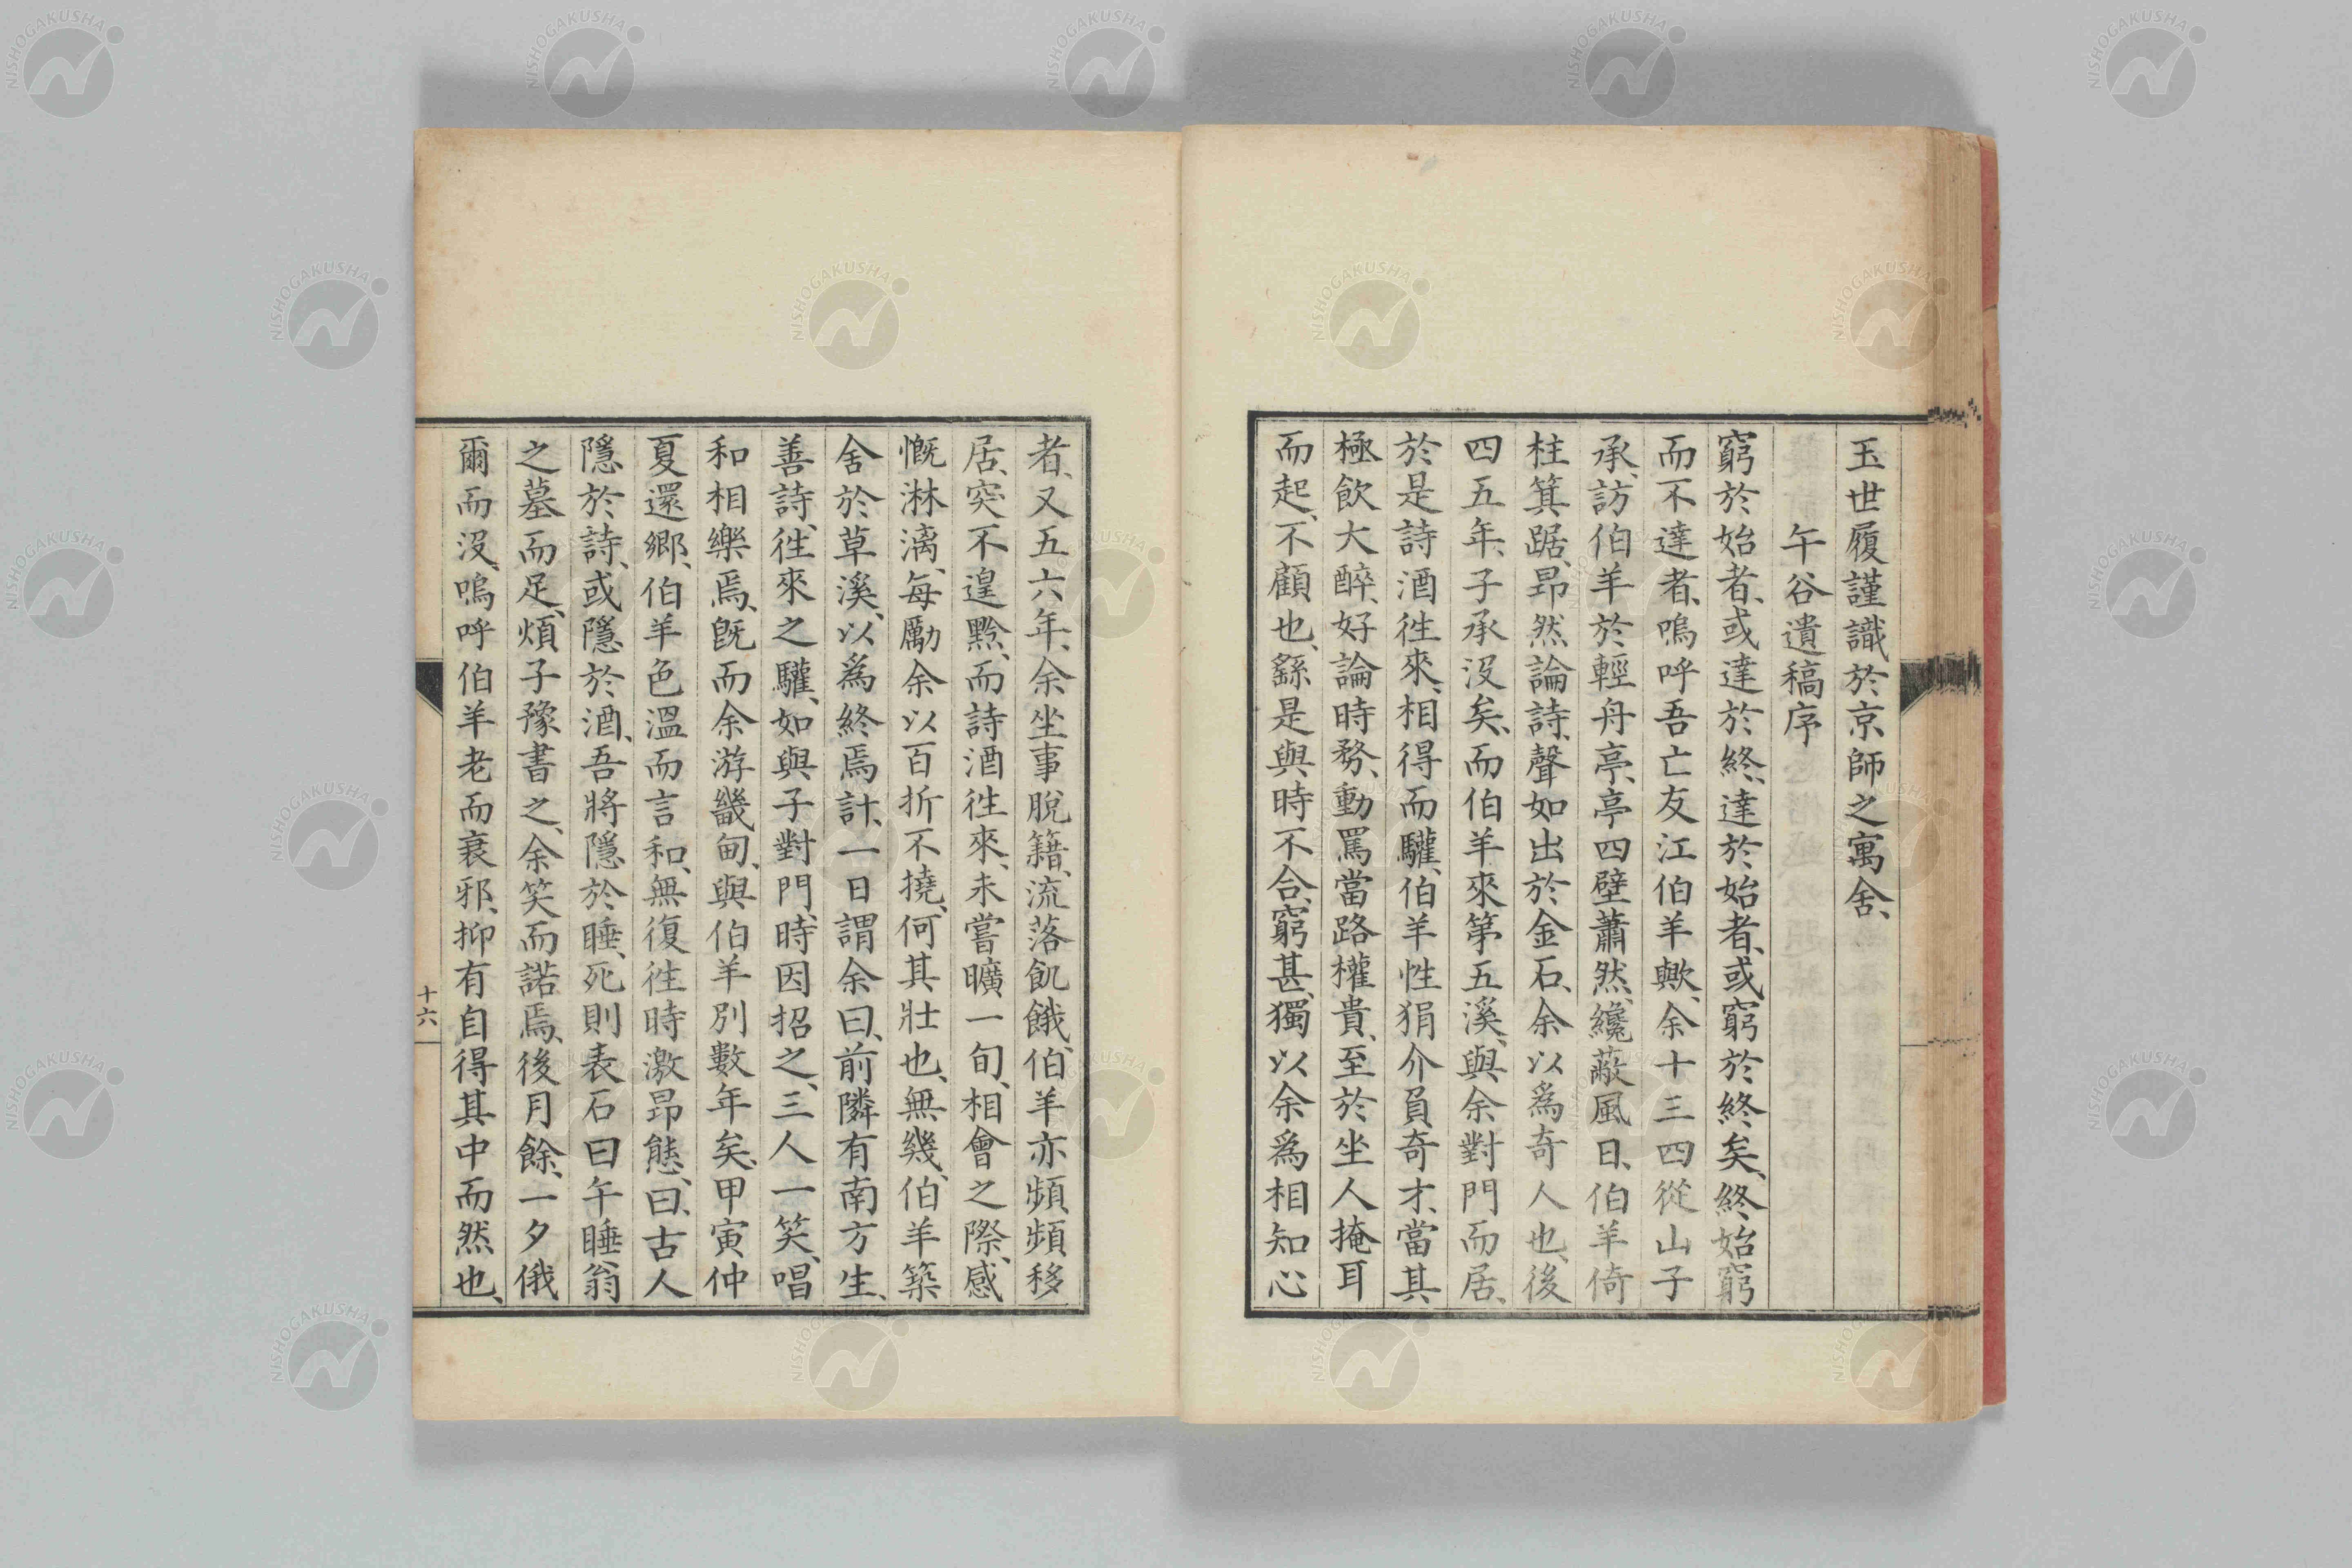 玉世履謹識於京師之寓舍、
午谷遺稿序
窮於始者、或達於終、達於始者、或窮於終矣、終始窮
而不達者、嗚呼吾亡友江伯羊歟、余十三四從山子
承、訪伯羊於輕舟亭、亭四壁蕭然、纔蔽風日、伯羊倚
柱箕踞、昂然論詩、聲如出於金石、余以爲奇人也、後
四五年、子承没矣、而伯羊來第五溪、與余對門而居、
於是詩酒徃來、相得而驩、伯羊性狷介負奇才、當其
極飲大醉、好論時務、動罵當路權貴、至於坐人掩耳
而起、不顧也、繇是與時不合、窮甚、獨以余爲相知心
者、又五六年、余坐事脫籍、流落飢餓、伯羊亦頻頻移
居、突不遑黔、而詩酒徃來、未嘗曠一旬、相會之際、感
慨淋漓、每勵余以百折不撓、何其壯也、無幾、伯羊築
舍於草溪、以爲終焉計、一日謂余曰、前隣有南方生、
善詩、徃來之驩、如與子對門時、因招之、三人一笑、唱
和相樂焉、旣而余游畿甸、與伯羊別數年矣、甲寅仲
夏還鄉、伯羊色溫而言和、無復徃時激昂態、曰、古人
隱於詩、或隱於酒、吾將隱於睡、死則表石曰午睡翁
之墓而足、煩子豫書之、余笑而諾焉、後月餘、一夕俄
爾而没、嗚呼伯羊老而衰邪、抑有自得其中而然也、
十六
NISHOGAKUSHA